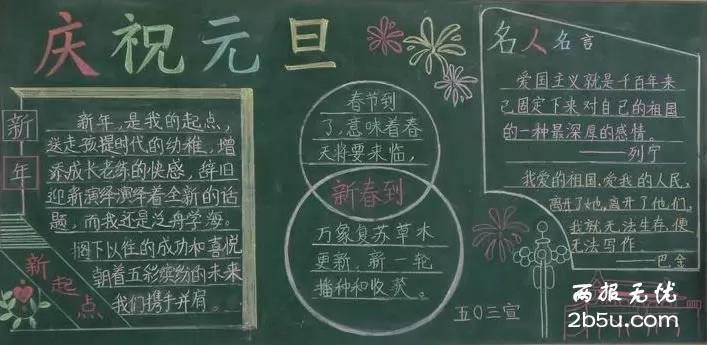 庆祝元旦
新年
新年，是我的起点，
送走孩提时代的幼稚，增
添成长老练的快感，辞旧
迎新演绎演绎着全新的话
题，而我还是泛舟学海。
搁下以往的成功和喜悦
朝着五彩缤纷的未来
我们携手并肩。
新起点
春节到
了，意味着春
天将要来临，
新春到
万家复苏草木
更新，新一轮
播种和收获。
五〇三宣
名人名言
爱国主义就是千百年来
已固定下来对自己的祖国
的一种最深厚的感情。
——列宁
我爱的祖国，爱我的人民，
离开了她，离开了他们，
我就无法生存，便
无法写作。
——巴金
两报无忧
2b5u.com